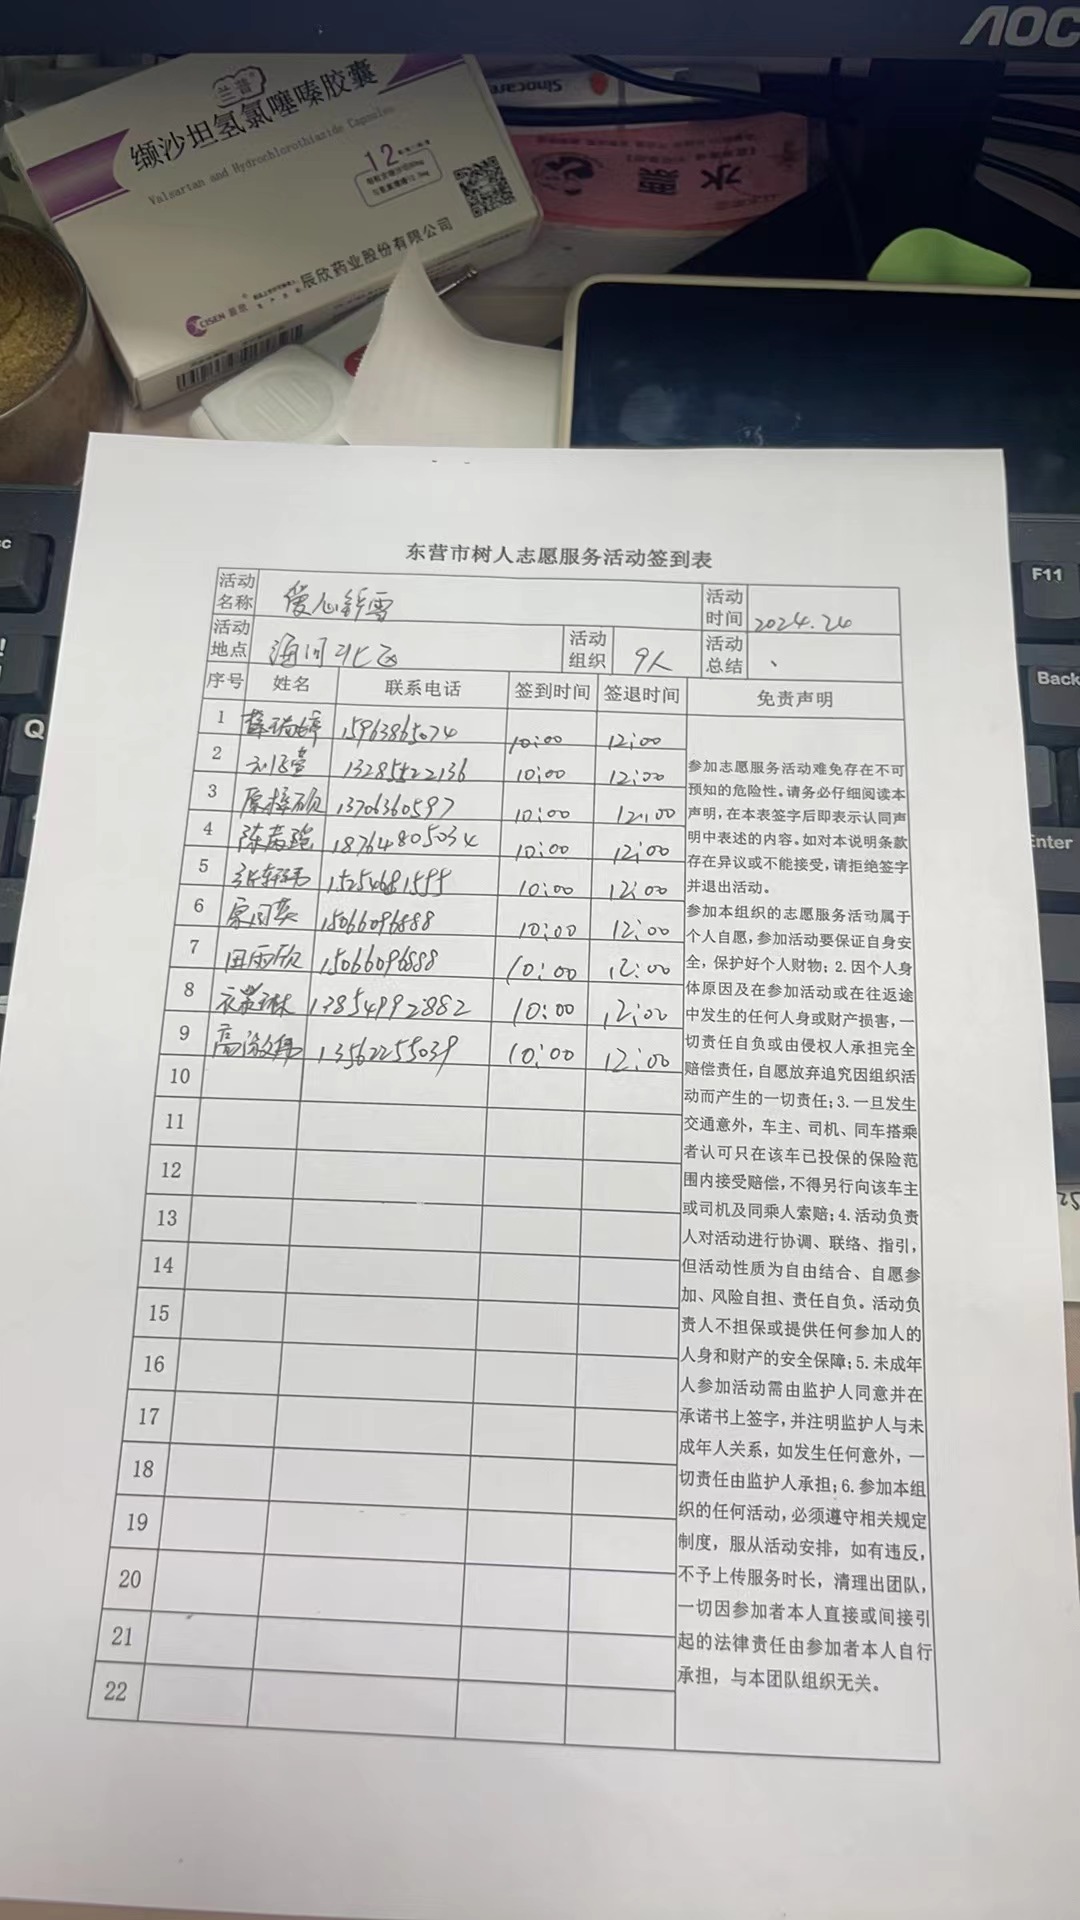 AOC
兰普®
缬沙坦氢氯噻嗪胶囊
Valsartan and Hydrochlorothiazide Capsules
12
CISEN 辰欣
辰欣药业股份有限公司
Sinocare
水票
F11
Back
Enter
Q
东营市树人志愿服务活动签到表
活动名称 爱心铲雪 活动时间 2024.24
活动地点 海河北区 活动组织 9人 活动总结 、
序号 姓名 联系电话 签到时间 签退时间 免责声明
1 15963865074 10:00 12:00
2 13285422136 10:00 12:00
3 13706360597 10:00 12:00
4 18764805034 10:00 12:00
5 10:00 12:00
6 15066096888 10:00 12:00
7 田雨欣 15066096888 10:00 12:00
8 13854992882 10:00 12:00
9 13562255039 10:00 12:00
10
11
12
13
14
15
16
17
18
19
20
21
22
参加志愿服务活动难免存在不可
预知的危险性。请务必仔细阅读本
声明，在本表签字后即表示认同声
明中表述的内容。如对本说明条款
存在异议或不能接受，请拒绝签字
并退出活动。
参加本组织的志愿服务活动属于
个人自愿，参加活动要保证自身安
全，保护好个人财物；2.因个人身
体原因及在参加活动或在往返途
中发生的任何人身或财产损害，一
切责任自负或由侵权人承担完全
赔偿责任，自愿放弃追究因组织活
动而产生的一切责任；3.一旦发生
交通意外，车主、司机、同车搭乘
者认可只在该车已投保的保险范
围内接受赔偿，不得另行向该车主
或司机及同乘人索赔；4.活动负责
人对活动进行协调、联络、指引，
但活动性质为自由结合、自愿参
加、风险自担、责任自负。活动负
责人不担保或提供任何参加人的
人身和财产的安全保障；5.未成年
人参加活动需由监护人同意并在
承诺书上签字，并注明监护人与未
成年人关系，如发生任何意外，一
切责任由监护人承担；6.参加本组
织的任何活动，必须遵守相关规定
制度，服从活动安排，如有违反，
不予上传服务时长，清理出团队，
一切因参加者本人直接或间接引
起的法律责任由参加者本人自行
承担，与本团队组织无关。